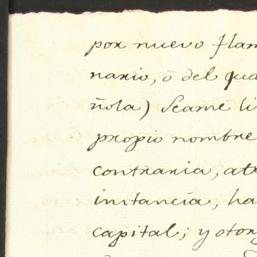 por nuevo flam
nario, ó del qua
ñola) Seame li
propio nombre
contraria, atr
instancia, ha
capital; y otor